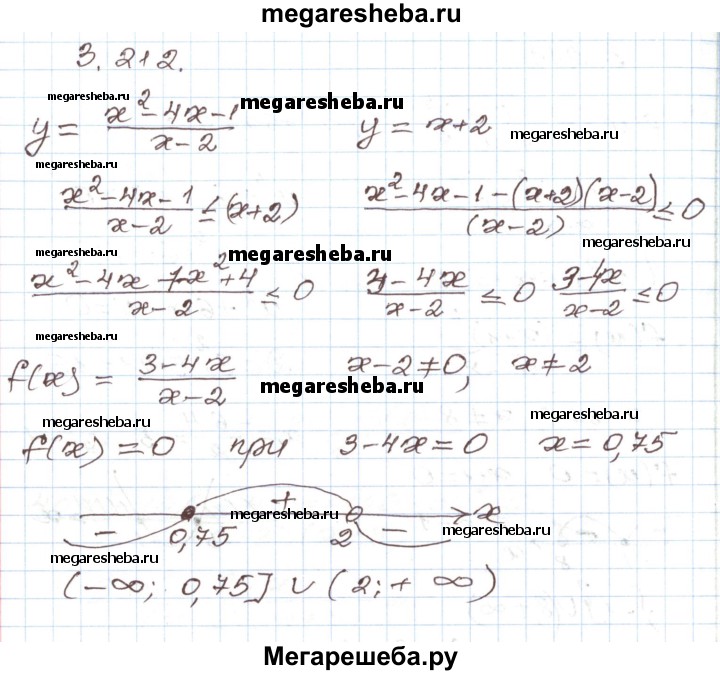 megaresheba.ru
3.212.
megaresheba.ru megaresheba.ru
y = (x² - 4x - 1)/(x - 2) y = x + 2 megaresheba.ru
megaresheba.ru
(x² - 4x - 1)/(x - 2) ≤ (x + 2) (x² - 4x - 1 - (x + 2)(x - 2))/(x - 2) ≤ 0
megaresheba.ru megaresheba.ru
(x² - 4x - 1 - x² + 4)/(x - 2) ≤ 0 (3 - 4x)/(x - 2) ≤ 0 (3 - 4x)/(x - 2) ≤ 0
megaresheba.ru
f(x) = (3 - 4x)/(x - 2) x - 2 ≠ 0, x ≠ 2
megaresheba.ru
megaresheba.ru megaresheba.ru
f(x) = 0 при 3 - 4x = 0 x = 0,75
+
megaresheba.ru x
- 0,75 2 -
megaresheba.ru megaresheba.ru
(-∞; 0,75] ∪ (2; + ∞)
Мегарешеба.ру